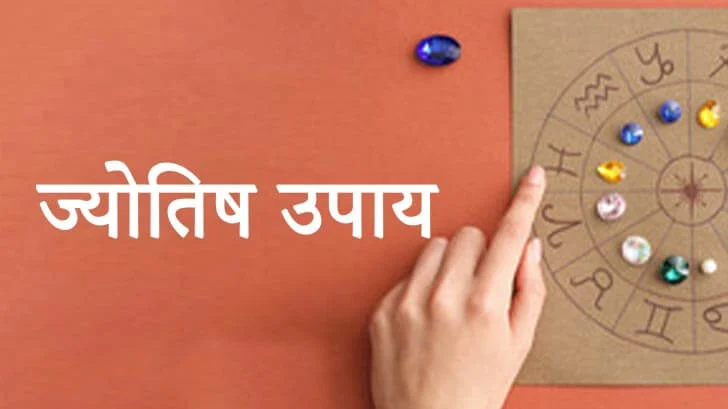 ज्योतिष उपाय